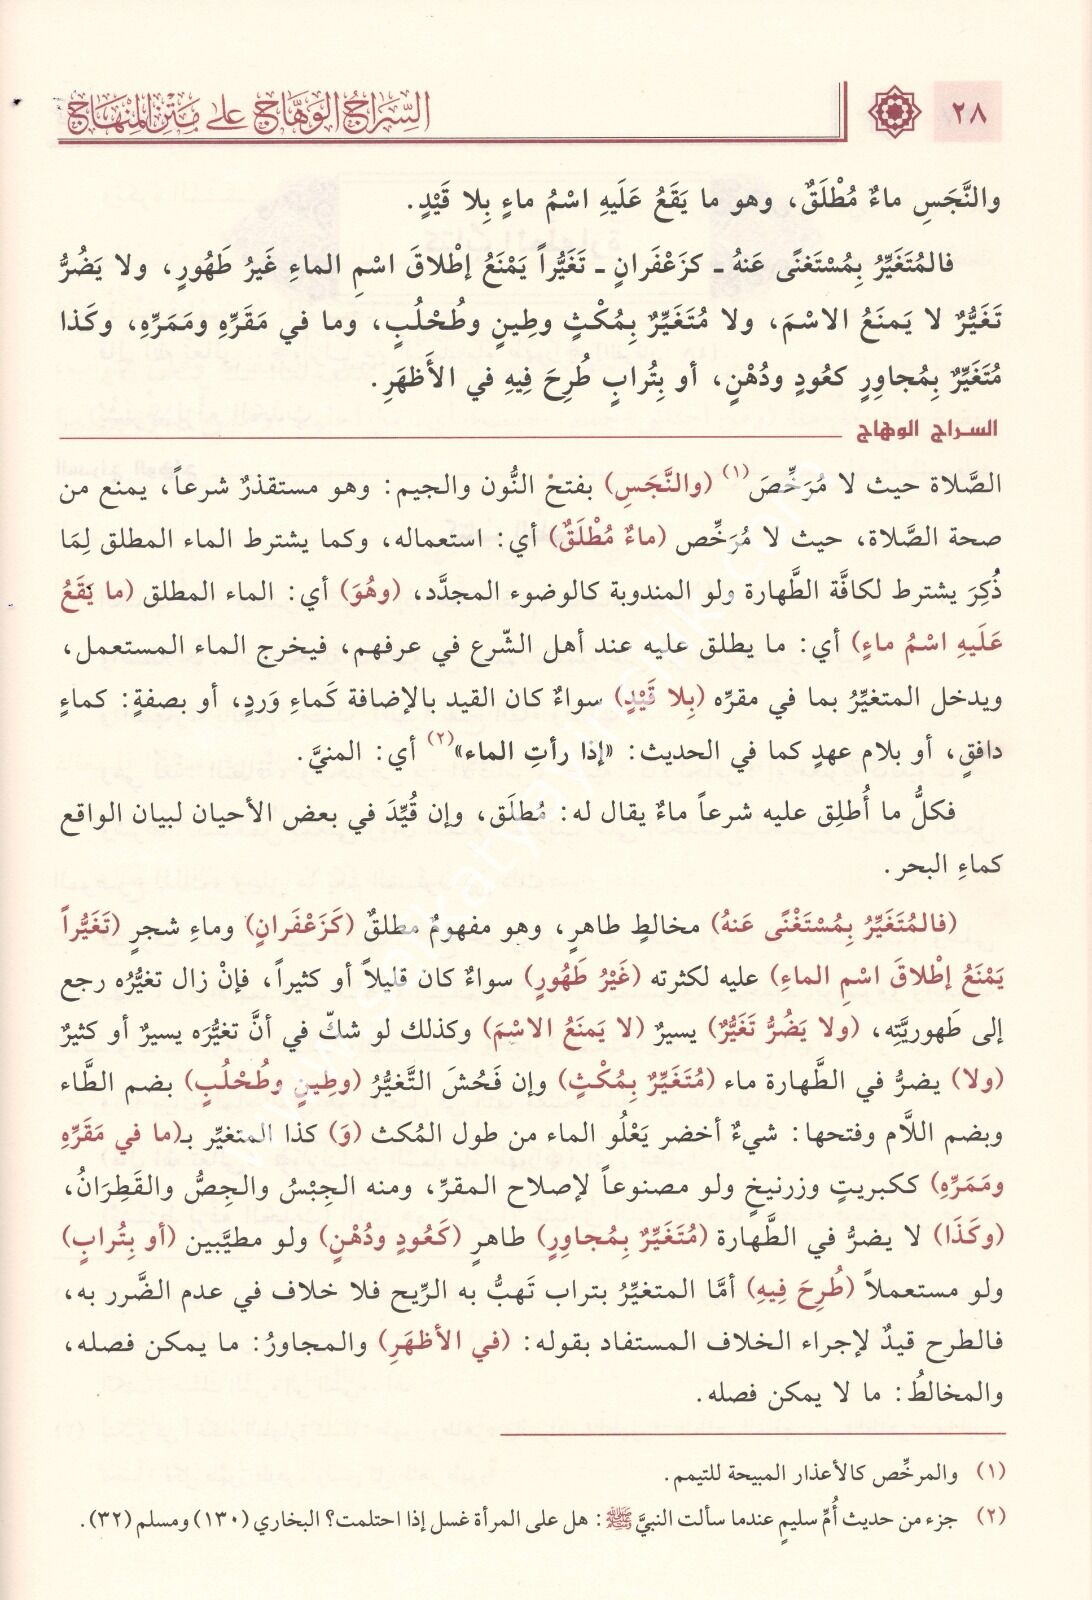 ٢٨
السِّرَاجُ الوَهَّاجُ عَلَى مَتْنِ المِنْهَاجِ
والنَّجَسِ ماءٌ مُطْلَقٌ، وهو ما يَقَعُ عَلَيهِ اسْمُ ماءٍ بِلا قَيْدٍ.
فالمُتَغَيِّرُ بِمُسْتَغنًى عَنهُ ـ كزَعْفَرانٍ ـ تَغَيُّراً يَمْنَعُ إطْلاقَ اسْمِ الماءِ غَيرُ طَهُورٍ، ولا يَضُرُّ
تَغَيُّرٌ لا يَمنَعُ الاسْمَ، ولا مُتَغَيِّرٌ بِمُكْثٍ وطِينٍ وطُحْلُبٍ، وما في مَقَرِّهِ ومَمَرِّهِ، وكَذا
مُتَغَيِّرٌ بِمُجاوِرٍ كعُودٍ ودُهْنٍ، أو بِتُرابٍ طُرِحَ فِيهِ في الأَظهَرِ.
السراج الوهاج
الصَّلاة حيث لا مُرَخِّصَ(١) (والنَّجَسِ) بفتحْ النُّون والجيم: وهو مستقذرٌ شرعاً، يمنع من
صحة الصَّلاة، حيث لا مُرَخِّص (ماءٌ مُطْلَقٌ) أي: استعماله، وكما يشترط الماء المطلق لِمَا
ذُكِرَ يشترط لكافَّة الطَّهارة ولو المندوبة كالوضوء المجدَّد، (وهُوَ) أي: الماء المطلق (ما يَقَعُ
عَلَيهِ اسْمُ ماءٍ) أي: ما يطلق عليه عند أهل الشّرع في عرفهم، فيخرج الماء المستعمل،
ويدخل المتغيِّرُ بما في مقرِّه (بِلا قَيْدٍ) سواءٌ كان القيد بالإضافة كَماءِ وَردٍ، أو بصفةٍ: كماءٍ
دافقٍ، أو بلام عهدٍ كما في الحديث: «إذا رأتِ الماء»(٢) أي: المنيَّ.
فكلُّ ما أُطلِق عليه شرعاً ماءٌ يقال له: مُطلَق، وإن قُيِّدَ في بعض الأحيان لبيان الواقع
كماءِ البحر.
(فالمُتَغَيِّرُ بِمُسْتَغْنًى عَنهُ) مخالطٍ طاهرٍ، وهو مفهومٌ مطلقٌ (كَزَعْفَرانٍ) وماءِ شجرٍ (تَغَيُّراً
يَمْنَعُ إطْلاقَ اسْمِ الماءِ) عليه لكثرته (غَيْرُ طَهُورٍ) سواءٌ كان قليلاً أو كثيراً، فإنْ زال تغيُّرُه رجع
إلى طَهوريَّتِه، (ولا يَضُرُّ تَغَيُّرٌ) يسيرٌ (لا يَمنَعُ الاسْمَ) وكذلك لو شكّ في أنَّ تغيُّرَه يسيرٌ أو كثيرٌ
(ولا) يضرُّ في الطَّهارة ماء (مُتَغَيِّرٌ بِمُكْثٍ) وإن فَحُشَ التَّغيُّرُ (وطِينٍ وطُحْلُبٍ) بضم الطَّاء
وبضم اللَّام وفتحها: شيءٌ أخضر يَعْلُو الماء من طول المُكث (وَ) كذا المتغيِّر بـ(ما في مَقَرِّهِ
ومَمَرِّهِ) ككبريتٍ وزرنيخٍ ولو مصنوعاً لإصلاح المقرِّ، ومنه الجِبْسُ والجِصُّ والقَطِرَانُ،
(وكَذَا) لا يضرُّ في الطَّهارة (مُتَغَيِّرٌ بِمُجاوِرٍ) طاهرٍ (كَعُودٍ ودُهْنٍ) ولو مطيَّبين (أو بِتُرابٍ)
ولو مستعملاً (طُرِحَ فِيهِ) أمَّا المتغيِّرُ بتراب تَهبُّ به الرِّيح فلا خلاف في عدم الضَّرر به،
فالطرح قيدٌ لإجراء الخلاف المستفاد بقوله: (في الأظهَرِ) والمجاورُ: ما يمكن فصله،
والمخالطُ: ما لا يمكن فصله.
(١) والمرخِّص كالأعذار المبيحة للتيمم.
(٢) جزء من حديث أُمِّ سليمٍ عندما سألت النبيَّ ﷺ: هل على المرأة غسل إذا احتلمت؟ البخاري (١٣٠) ومسلم (٣٢).